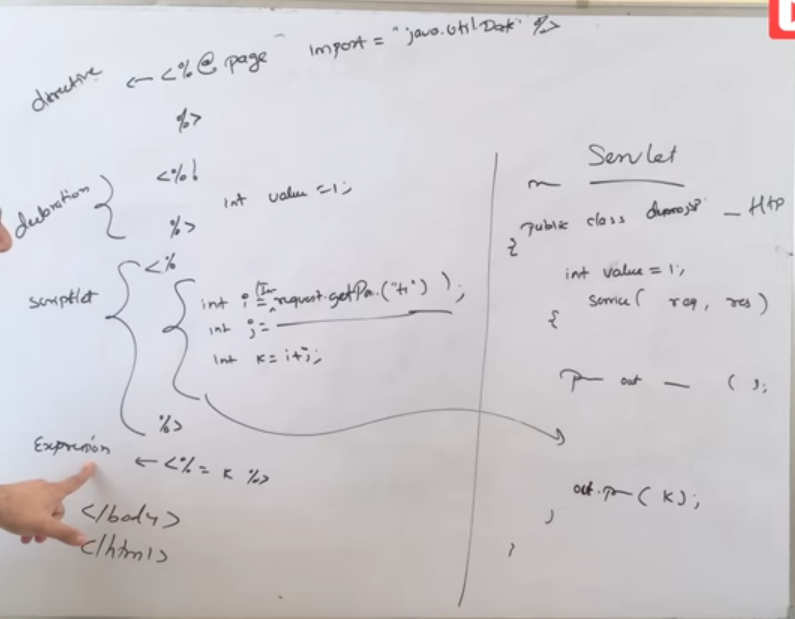 directive ← <%@ page import = "java.util.Date" %>
%>
declaration
<%!
int value =1;
%>
scriptlet
<%
int i = (In request.getPa.("t1") );
int j =
int k= i+j;
%>
Expression ← <%= K %>
</body>
</html>
Servlet
public class demojsp — Http
{
int value = 1;
service( req, res)
{
out — ( );
out.p (K);
}
}